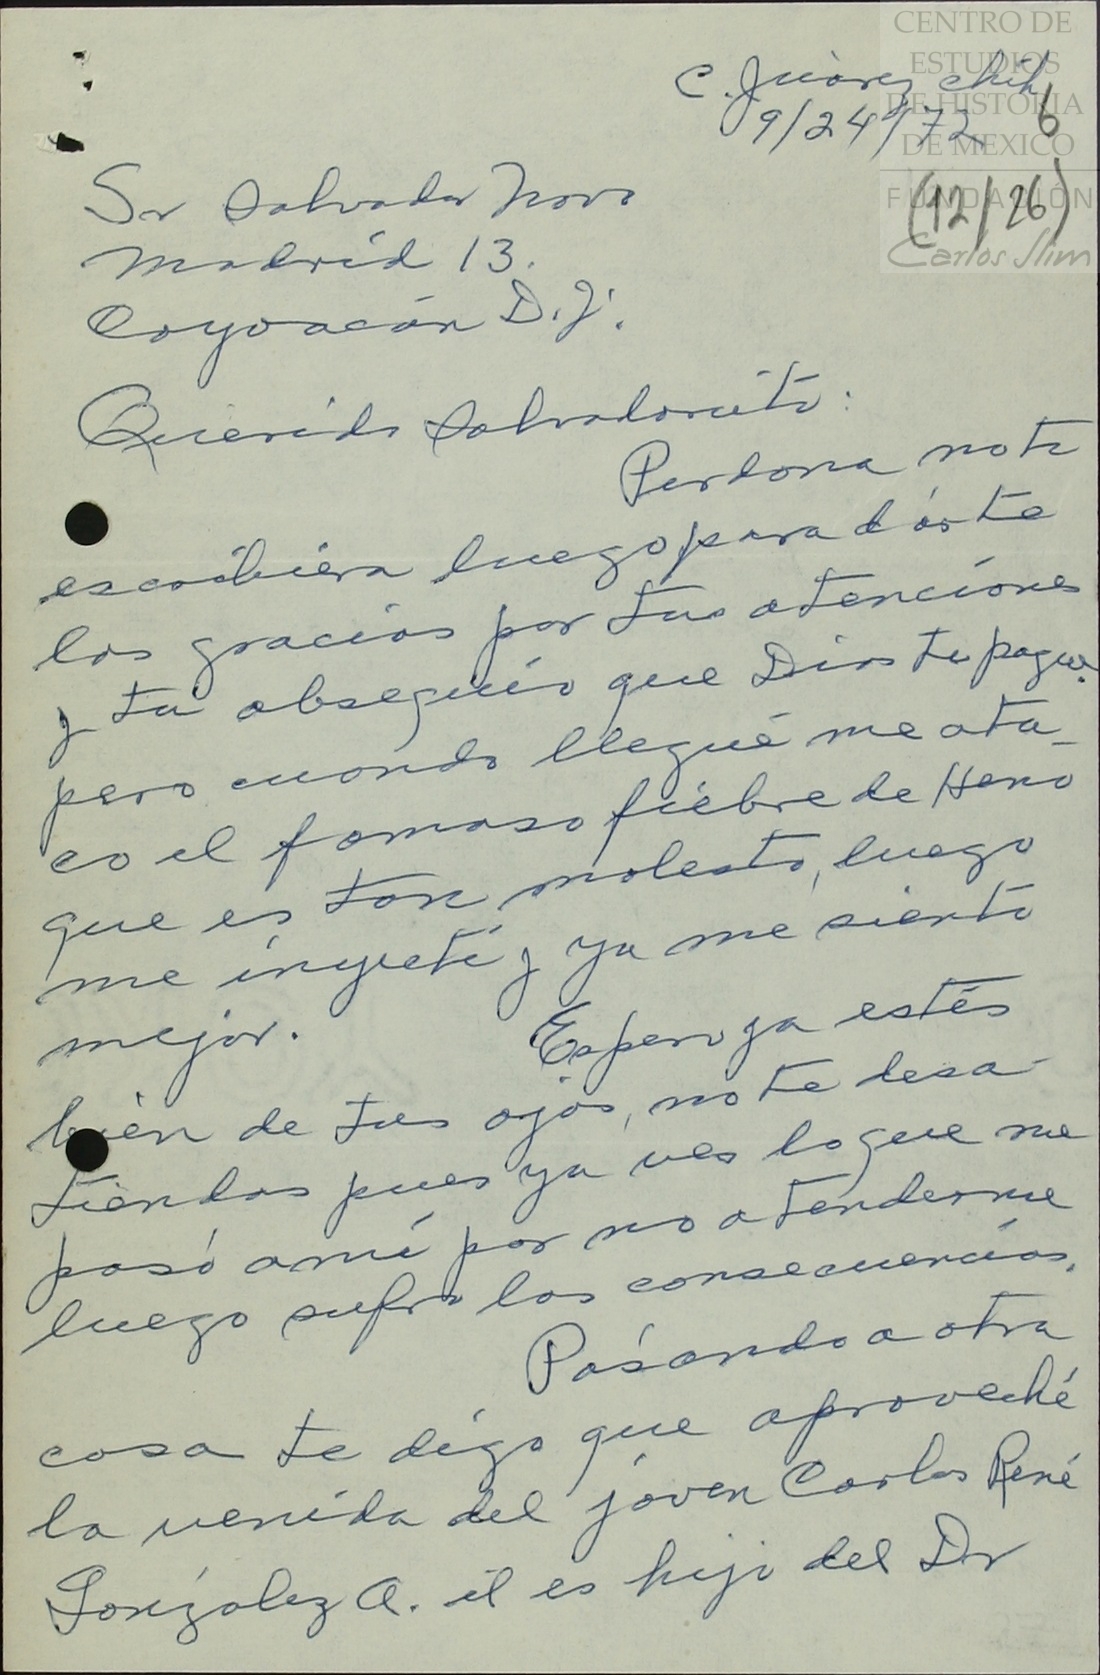 CENTRO DE
ESTUDIOS
DE HISTORIA
DE MEXICO
FUNDACIÓN
Carlos Slim
C. Juárez Chih
9/24/72
6
(12/26)
Sr Salvador Novo
Madrid 13.
Coyoacán D.F.
Querido Salvadorcito:
Perdona no te
escribiera luego para dárte
las gracias por tus atenciones
y tu obsequio que Dios te pague.
pero cuando llegué me ata-
co el famoso fiébre de Heno
que es tan molesto, luego
me inyeté y ya me siento
mejor. Espero ya estés
bién de tus ojos, no te desa-
tiendas pues ya ves lo que me
pasó a mí por no atenderme
luego sufro las consecuencias.
Pasándo a otra
cosa te dígo que aproveché
la venida del jóven Carlos René
González A. él es hijo del Dr